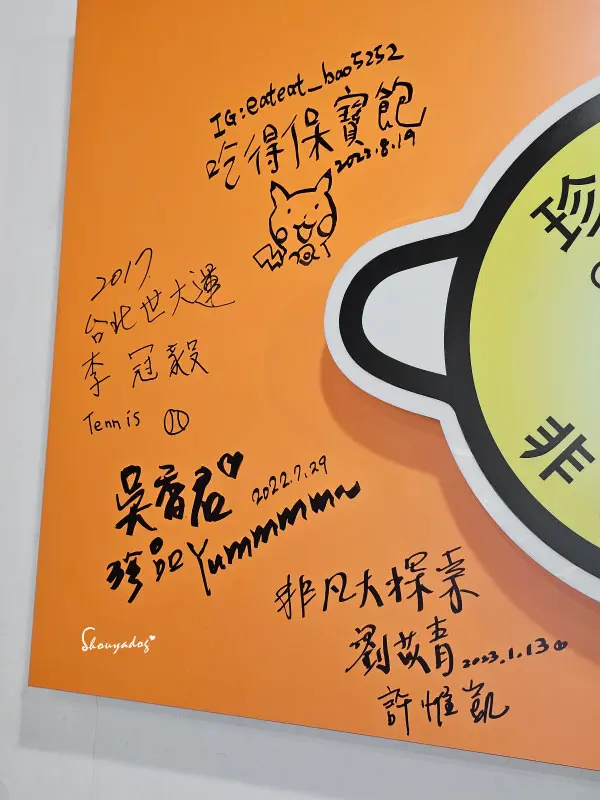 IG:eateat_bao5252
吃得保寶飽
2023.8.19
2017
台北世大運
李冠毅
Tennis
吳香君
2022.7.29
珍品Yummmmm~
非凡大探索
劉苡青
2023.1.13
許惟凱
Shouyadog
珍
非